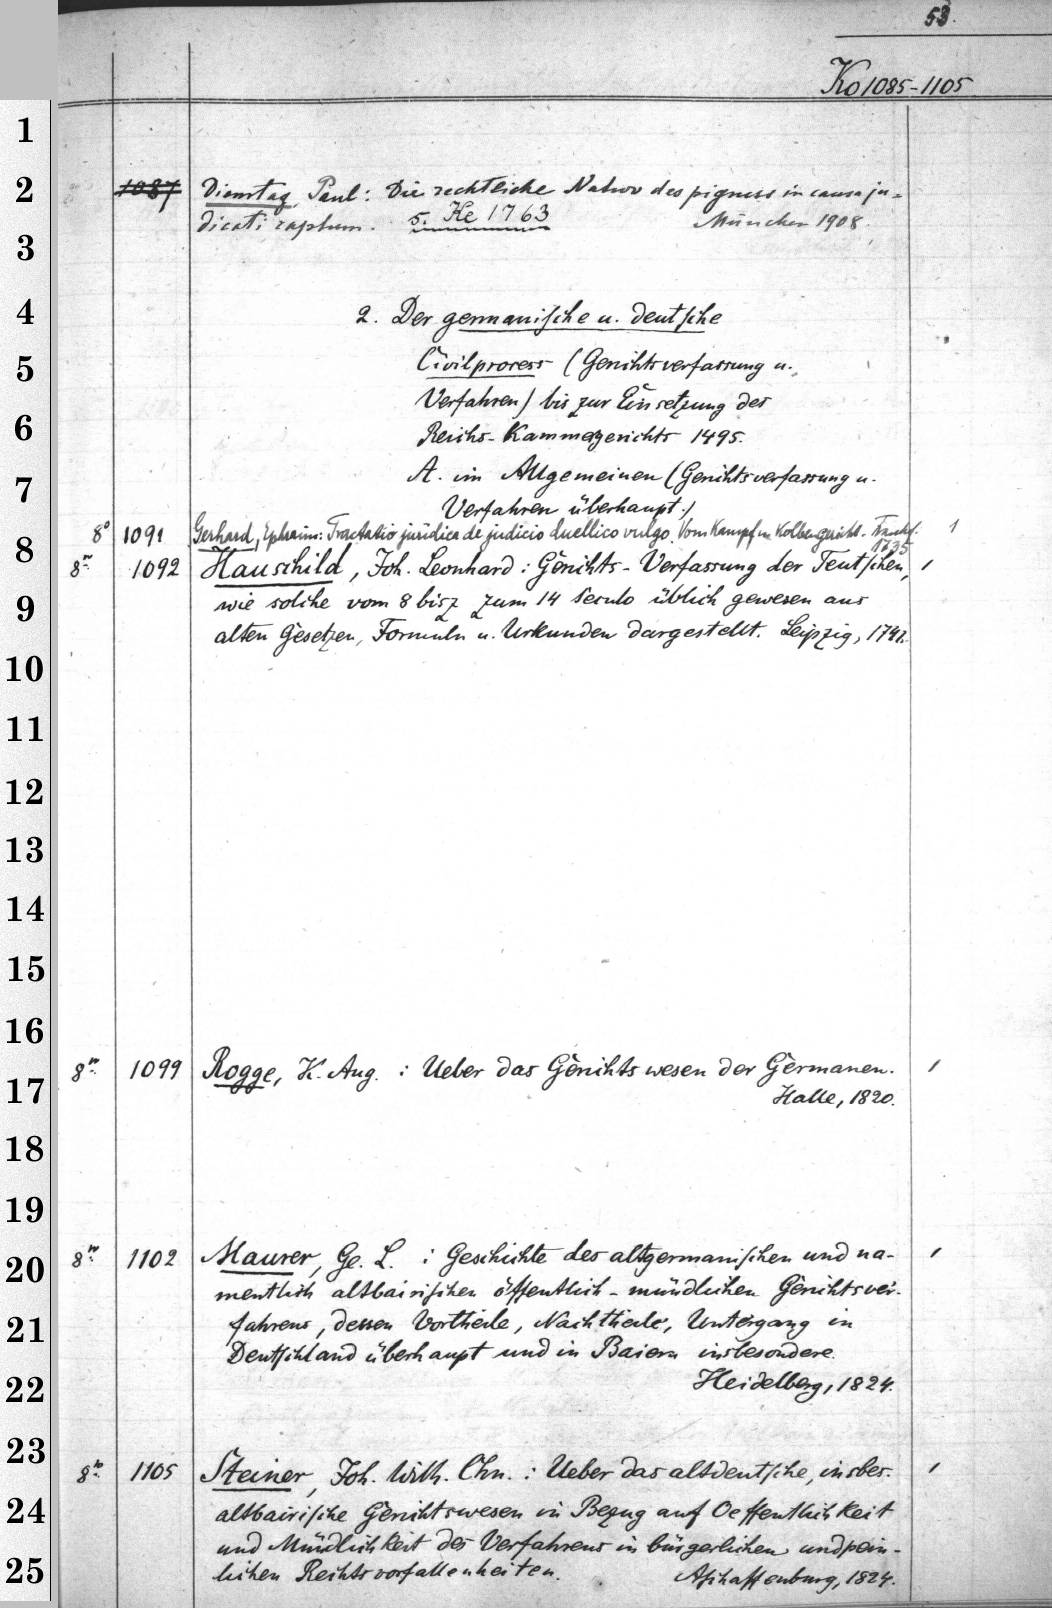 53.
Ko 1085-1105
1
2
3
4
5
6
7
8
9
10
11
12
13
14
15
16
17
18
19
20
21
22
23
24
25
1087 Dienstag, Paul: Die rechtliche Natur des pignus in causa ju-
dicati captum. s. Ke 1763 München 1908.
2. Der germanische u. deutsche
Civilprocess (Gerichtsverfassung u.
Verfahren) bis zur Einsetzung des
Reichs-Kammergerichts 1495.
A. im Allgemeinen (Gerichtsverfassung u.
Verfahren überhaupt.)
8° 1091 Gerhard, Ephraim: Tractatio juridica de judicio duellico vulgo Vom Kampf u. Kolbengericht. Frankf. 1
1735
8° 1092 Hauschild, Joh. Leonhard: Gerichts-Verfassung der Teutschen, 1
wie solche vom 8 bisz zum 14 Seculo üblich gewesen aus
alten Gesetzen, Formuln u. Urkunden dargestellt. Leipzig, 1741.
8° 1099 Rogge, K. Aug.: Ueber das Gerichtswesen der Germanen. 1
Halle, 1820.
8° 1102 Maurer, Ge. L.: Geschichte des altgermanischen und na- 1
mentlich altbairischen öffentlich-mündlichen Gerichtsver-
fahrens, dessen Vortheile, Nachtheile, Untergang in
Deutschland überhaupt und in Baiern insbesondere.
Heidelberg, 1824.
8° 1105 Steiner, Joh. Wilh. Chn.: Ueber das altdeutsche, insbes. 1
altbairische Gerichtswesen in Bezug auf Oeffentlichkeit
und Mündlichkeit des Verfahrens in bürgerlichen und pein-
lichen Rechtsvorfallenheiten. Aschaffenburg, 1824.